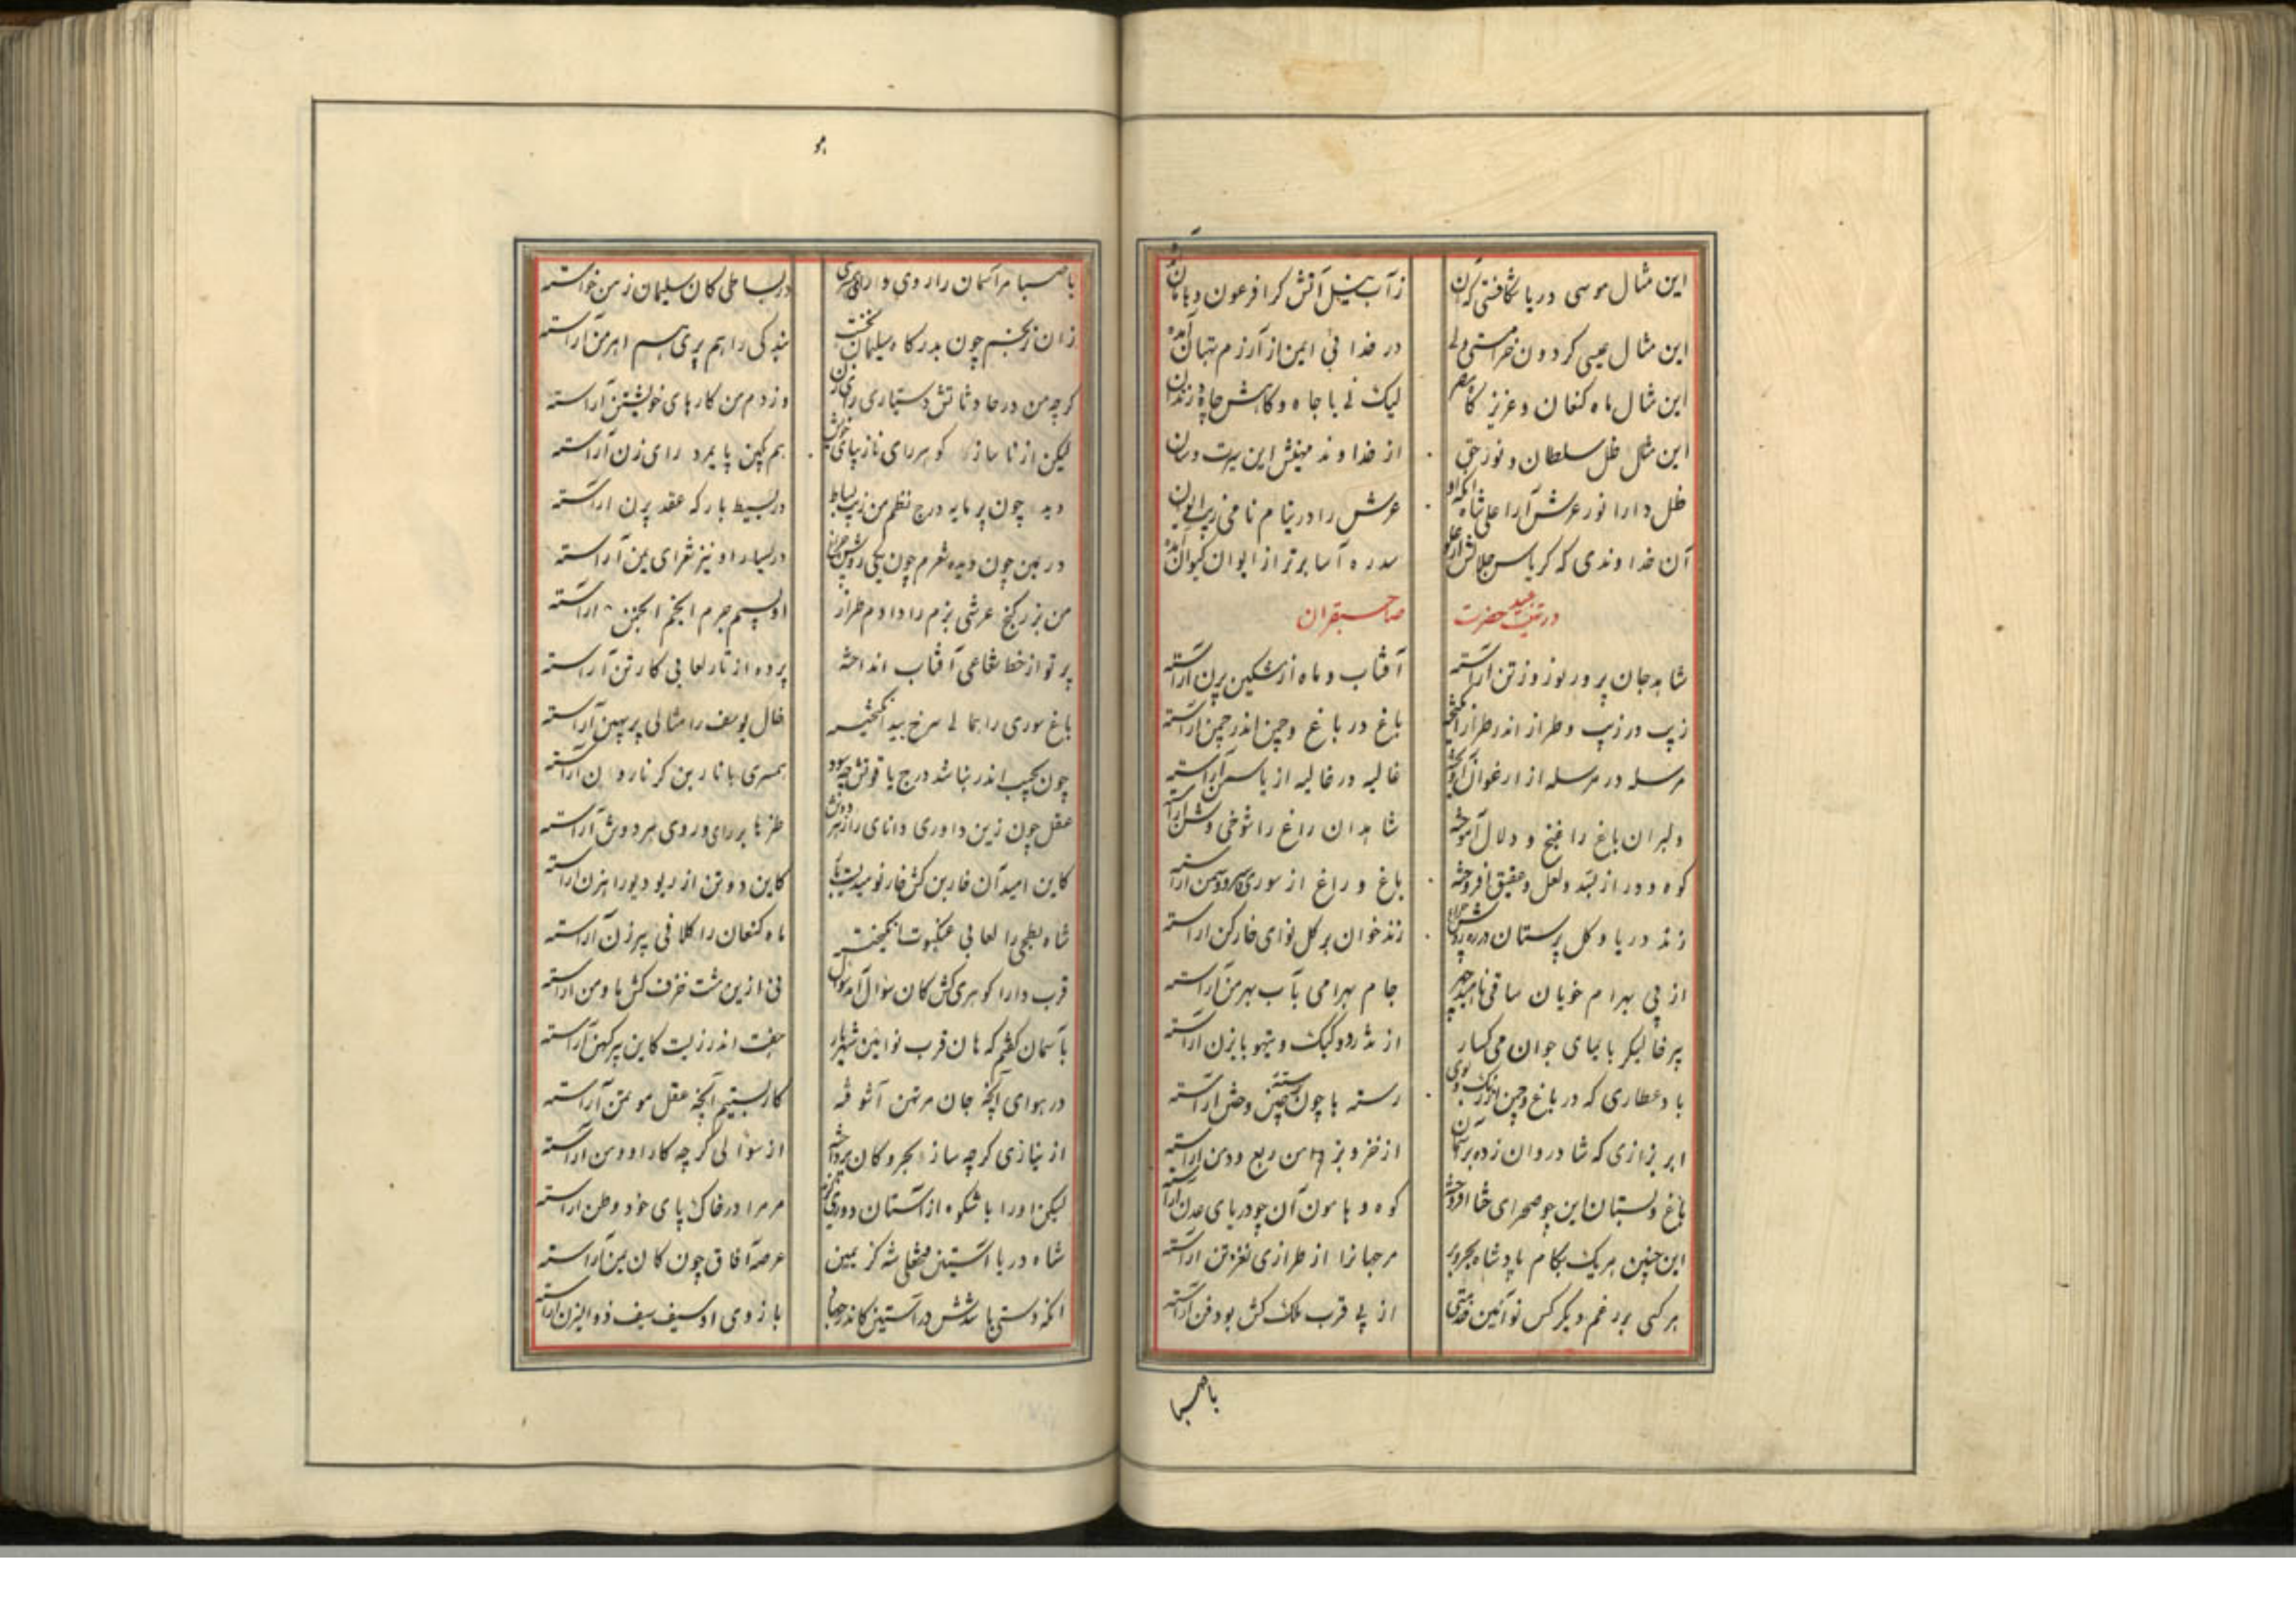 این مثال موسی دریا شکافتی کر آن
ز آب نیل آتش کرا فرعون و هامان
این مثال عیسی کردون خرامستی ولی
در خدا فی ایمن از آزرم تهان آمده
این مثال ماه کنعان و عزیز مصر
لیک نی با جاه و کاهش چاه و زندان
این مثال ظل سلطان و نور حق
از خداوند مهینش این سیرت و سان
ظل دارا نور عرش آرا علی شاه آنکه او
عرش را در نام نامی زیب ایوان
آن خداوندی که کریاس جلالش از علو
سدره آسا برتر از ایوان کیوان آمده
در تهنیت عید حضرت صاحبقران
شاهد جان پرور نوروز تن آراسته
آفتاب و ماه از مشکین پرن آراسته
زیب در زیب و طراز اندر طراز انگیخته
باغ در باغ و چمن اندر چمن آراسته
مرسله در مرسله از ارغوان آویخته
غالیه در غالیه از یاسمن آراسته
دلبران باغ را غنج و دلال آموخته
شاهدان راغ را شوخی و شن آراسته
کوه و در از بسد و لعل و عقیق افروخته
باغ و راغ از سوری و سرو و سمن آراسته
زند دریا و کل پرستان
زندخوان بر کل نوای خارکن آراسته
از پی بهرام خویان ساقی ناهید چهر
جام بهرامی بآب بهرمن آراسته
پیر خالیکر بایمای جوان می کسار
از تذرو و کبک و تیهو بابزن آراسته
باد عطاری که در باغ و چمن از رنگ و بوی
رسته ها چون ختن آراسته
ابر بزازی که شادروان زده بر آسمان
از خز و بز دامن ربع و دمن آراسته
باغ و بستان این چو صحرای ختا افروخته
کوه و هامون آن چو دریای عدن آراسته
این چنین هر یک بکام پادشاه بحر و بر
مر جهانرا از طرازی نغز تن آراسته
هر کسی بر رغم دیکر کس نو آئین خدمتی
از پی قرب ملک کش بود فن آراسته
با صبا
هو
با صبا مر آسمان را روی و رای همسری
در بساطی کان سلیمان زمن خواسته
زان نرنجم چون بدرکاه سلیمان نخست
بندکی را هم پری هم اهرمن آراسته
کرچه من در حادثاتش دستیاری رای زن
وز دم من کارهای خویشتن آراسته
لیکن از ناساز کوهر رای ناز پیای خویش
هم کهن پایمرد رای زن آراسته
دید چون پر مایه درج نظم من زیب بساط
در بسیط بارکه عقد پرن آراسته
در یمین چون دیده شعرم چون یکی روشن چراغ
در یسار او نیز شعرای یمن آراسته
من بزر کنج عرشی بزم را دادم طراز
او بسیم جرم انجم انجمن آراسته
پرتو از خط شعاعی آفتاب انداخته
پرده از تار لعابی کارتن آراسته
باغ سوری را بما لی سرخ بید انگیخته
خال یوسف را مثالی پر پهین آراسته
چون بچیب اندر نباشد درج یاقوتش چه سود
همسری با ناربن کر نارون آراسته
عقل چون زین داوری دانای راز هر دو شد
طنزها بر رای و روی هر دو وش آراسته
کاین امید آن خاربن کش خار نومیدیست بار
کاین دو تن از ریو دیو راهزن آراسته
شاه بطحی را لعابی عنکبوت انگیخته
ماه کنعان را کلافی پیرزن آراسته
قرب دارا کوهری کش کان سؤال آمد سؤل
نی ازین مشت خزف کش ما و من آراسته
باسمان کفتم که هان قرب نو آئین شهریار
جفت اندرزیست کاین پیر کهن آراسته
در هوای آنچه جان مرتهن آشوفته
کار بستیم آنچه عقل مؤتمن آراسته
از نیازی کرچه ساز بحر و کان پرداخته
از سؤالی کرچه کار او و من آراسته
لیکن او را با شکوه از آستان دوری
مر مرا در خاک پای خود وطن آراسته
شاه دریا آستین فتحعلی شه کز یمین
عرصه آفاق چون کان یمن آراسته
آنکه دستی با شدش در آستین کاندر جهان
بازوی او سیف سیف ذوالیزن آراسته